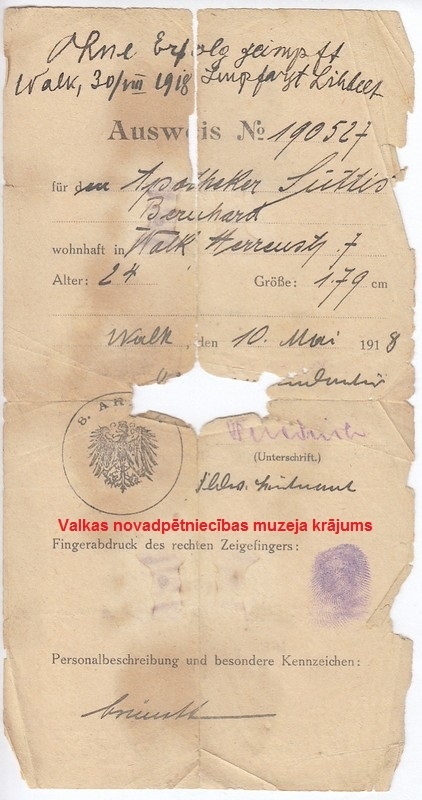 Ohne Erfolg geimpft
Walk, 30/VIII 1918 Impfarzt
Ausweis No 190527
für den Apotheker
Bernhard
wohnhaft in Walk Herrenstr. 7
Alter: 24 Größe: 1.79 cm
Walk, den 10. Mai 1918
8. AR
(Unterschrift.)
Valkas novadpētniecības muzeja krājums
Fingerabdruck des rechten Zeigefingers:
Personalbeschreibung und besondere Kennzeichen: